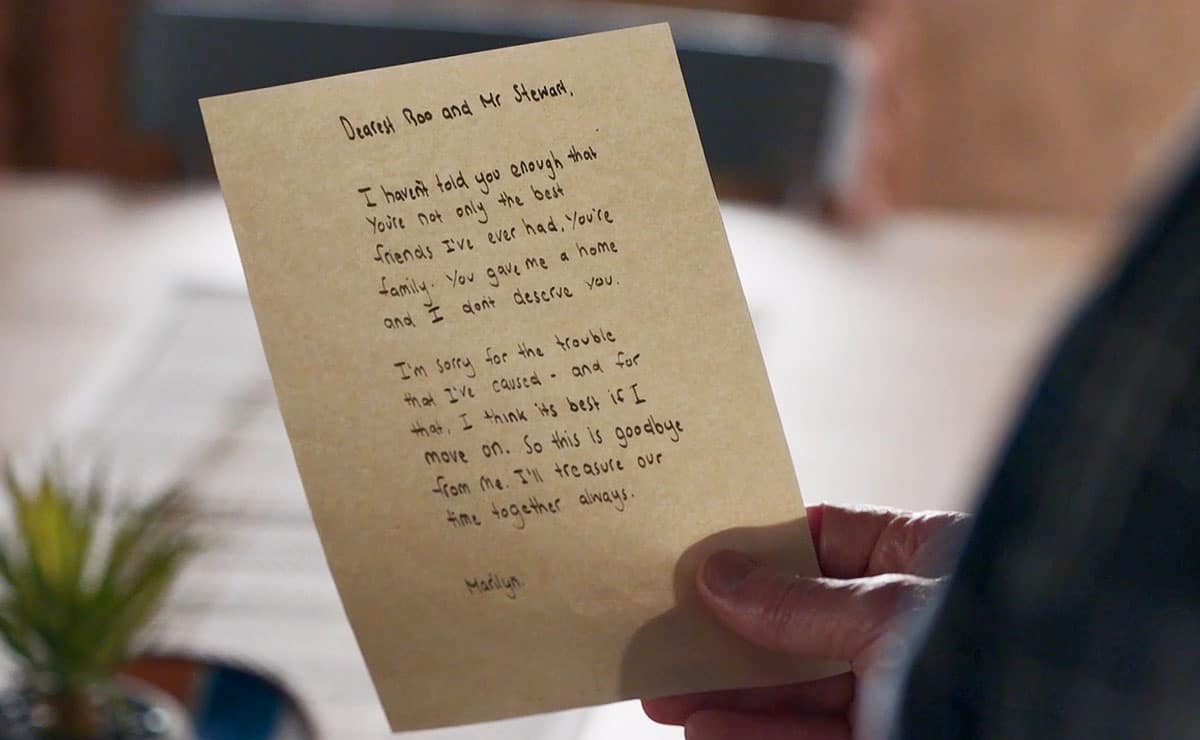 Dearest Roo and Mr Stewart,
I haven't told you enough that
You're not only the best
friends I've ever had, You're
family. You gave me a home
and I don't deserve you.
I'm sorry for the trouble
that I've caused - and for
that, I think its best if I
move on. So this is goodbye
from me. I'll treasure our
time together always.
Marilyn.